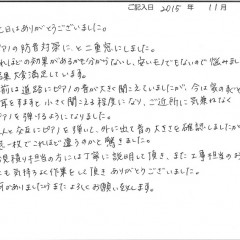 ご記入日 2015 年 11月
日はありがとうございました。
ピアノの防音対策に、と二重窓にしました。
れほどの効果があるかも分からないし、安いものでもないので悩みまし
果大満足しています。
前は道路にピアノの音が大きく聞こえていましたが、今は家の前で
耳をすますと小さく聞こえる程度になり、ご近所に気兼ねなく
ピアノを弾けるようになりました。
人と交互にピアノを弾いて、外に出て音の大きさを確認しましたが
窓一枚でこれほど違うのかと驚きました。
見積り担当の方には丁寧に説明して頂き、また工事担当のお
も気持ちよく作業をして頂きありがとうございました。
がありましたらまたよろしくお願い致します。